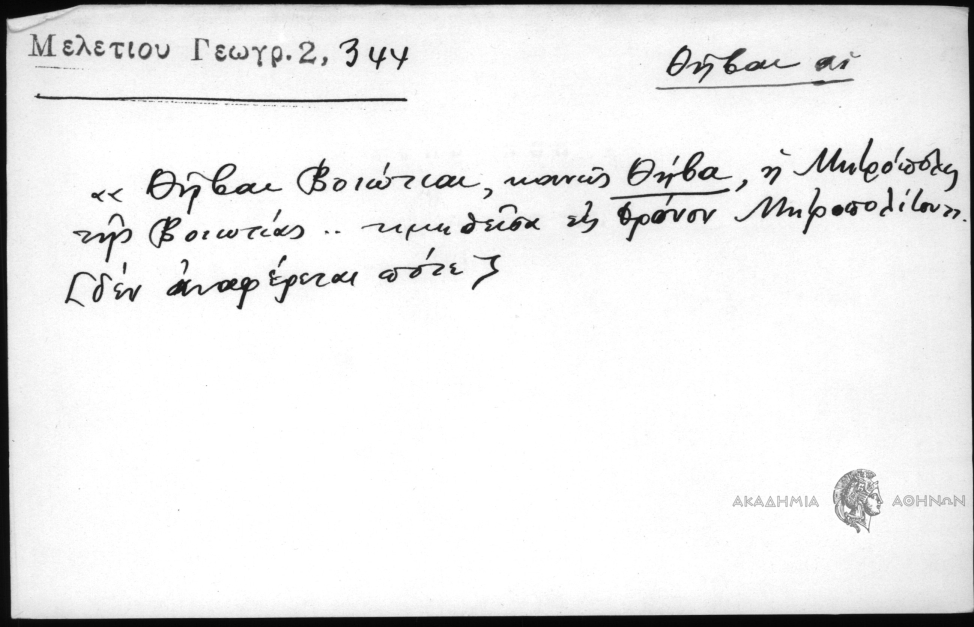 Μελετιου Γεωγρ. 2, 344
Θῆβαι αἱ
« Θῆβαι Βοιώτιαι, κοινῶς Θήβα, ἡ Μητρόπολις
τῆς Βοιωτίας .. τιμηθεῖσα εἰς θρόνον Μητροπολίτου
[δέν ἀναφέρεται πότε]
ΑΚΑΔΗΜΙΑ ΑΘΗΝΩΝ